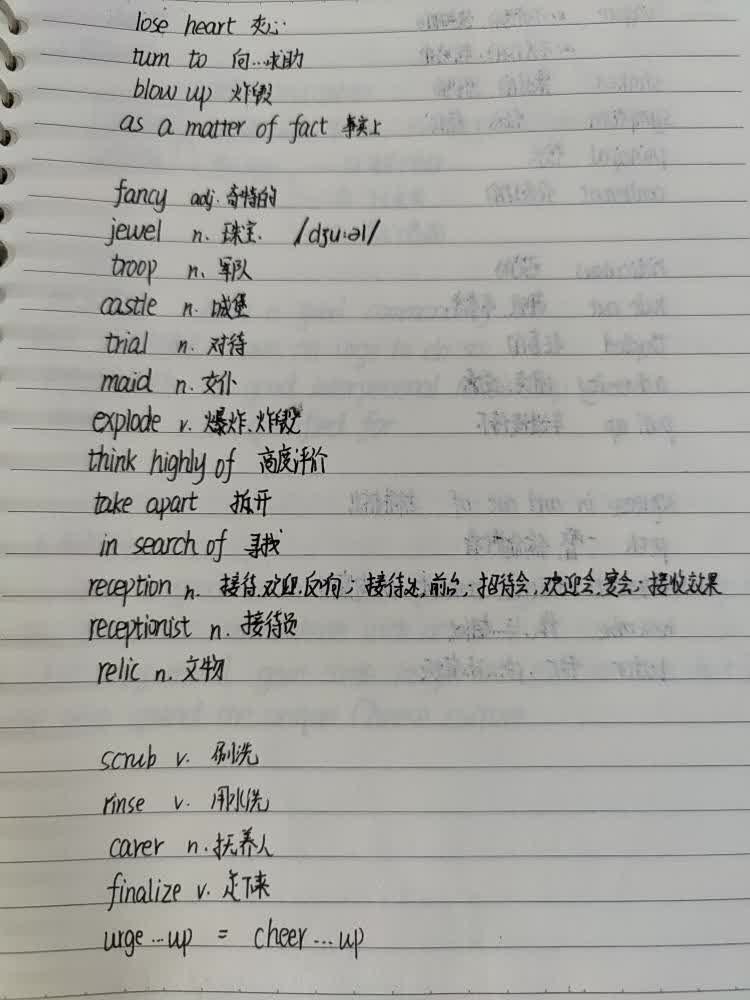 lose heart 灰心
turn to 向…求助
blow up 炸毁
as a matter of fact 事实上
fancy adj. 奇特的
jewel n. 珠宝. /dʒu:əl/
troop n. 军队
castle n. 城堡
trial n. 对待
maid n. 女仆
explode v. 爆炸.炸毁
think highly of 高度评价
take apart 拆开
in search of 寻找
reception n. 接待.欢迎.反向; 接待处,前台; 招待会,欢迎会,宴会; 接收效果
receptionist n. 接待员
relic n. 文物
scrub v. 刷洗
rinse v. 用水洗
carer n. 抚养人
finalize v. 定下来
urge...up = cheer...up